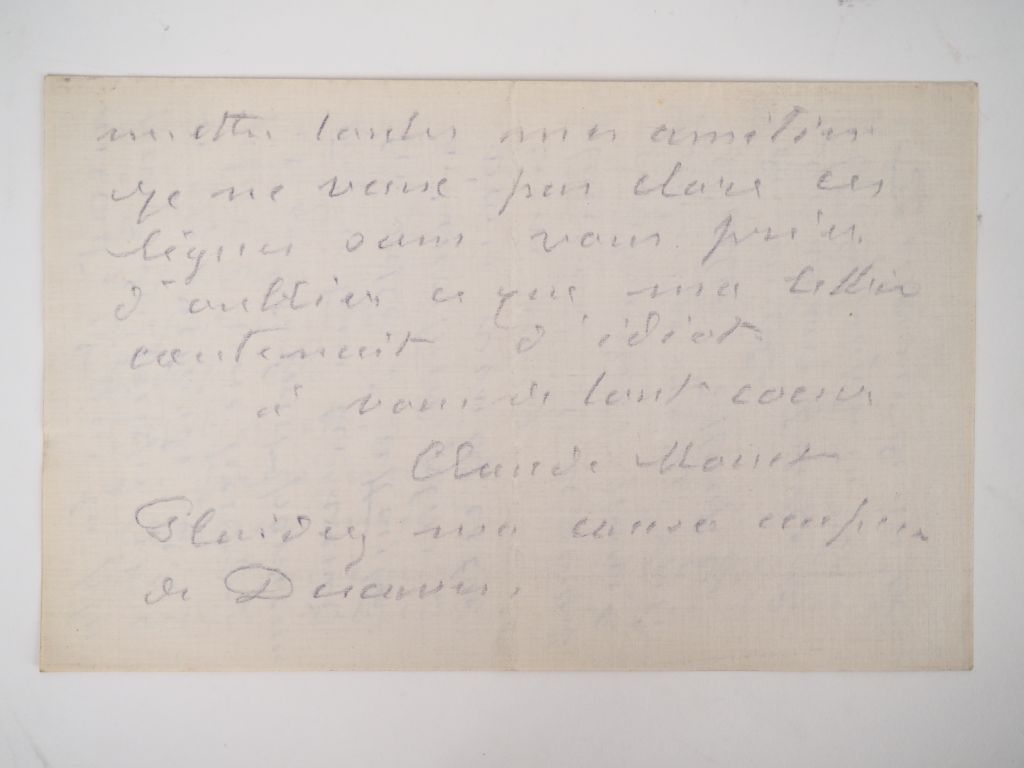 mettre toutes mes amitiés
Je ne veux pas clore ces
lignes sans vous prier
d'oublier ce que ma lettre
contenait d'idiot
à vous de tout coeur
Claude Monet
Plaidez ma cause auprès
de